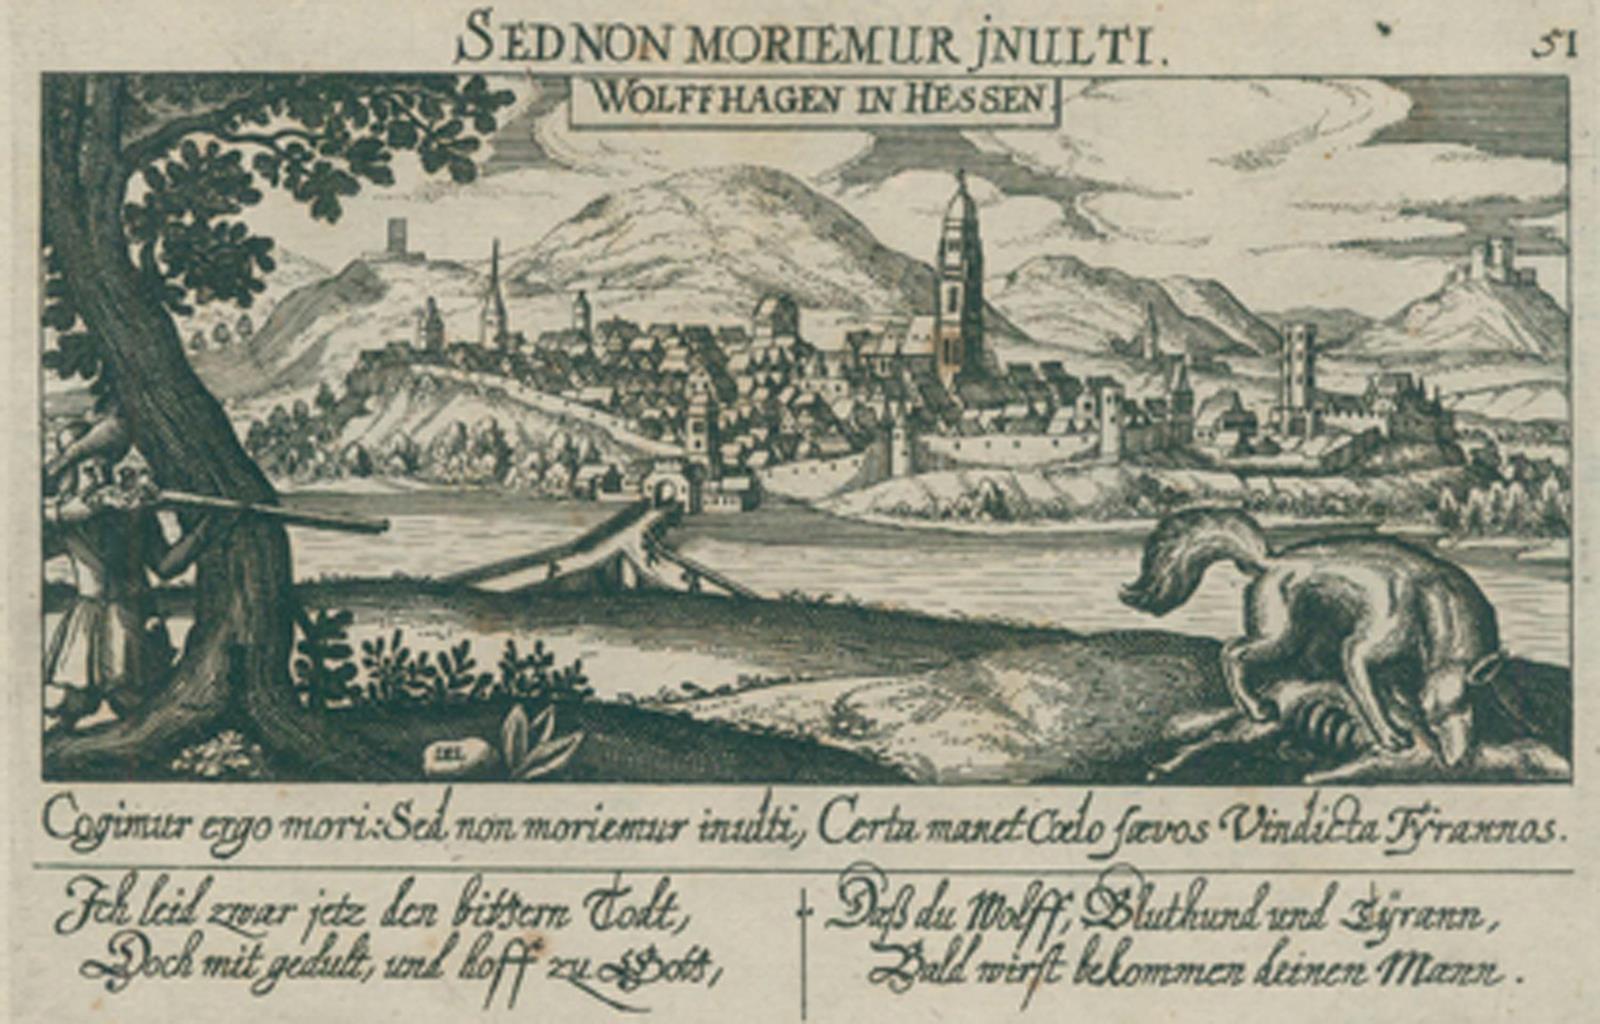 SED NON MORIEMUR jNULTI.
51
WOLFFHAGEN IN HESSEN.
Cogimur ergo mori: Sed non moriemur inulti, Certa manet Cœlo sævos Vindicta Tÿrannos.
Ich leid zwar jetz den bittern Todt,
Doch mit gedult, und hoff zu Gott,
Daß du Wolff, Bluthund und Tÿrann,
Bald wirst bekommen deinen Mann.